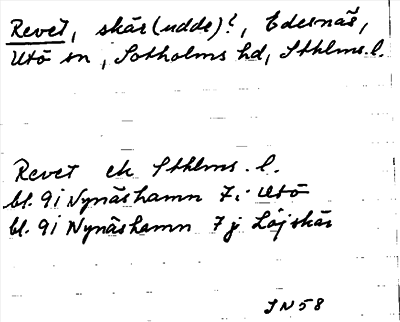 Revet, skär (udde)?, Edesnäs,
Utö sn, Sotholms hd, Sthlms. l.
Revet ek Sthlms. l.
bl. 9i Nynäshamn 7i Utö
bl. 9i Nynäshamn 7j Löjskär
IN 58